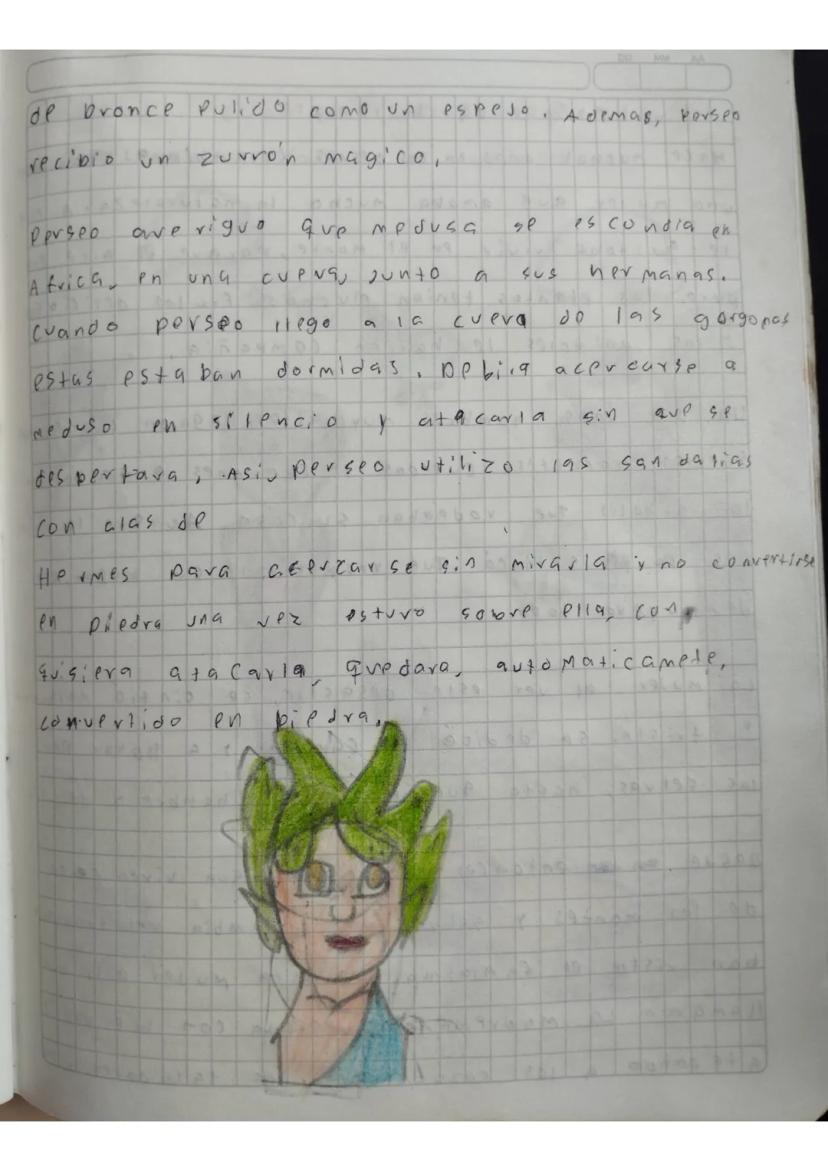 de bronce pulido como un espejo. Ademas, perseo
recibio un zurrón magico,
perseo averiguo que medusa se escondia en
Africa, en una cueva, junto a sus hermanas.
cuando perseo llego a la cueva de las gorgonas
estas estaban dormidas. Debira acercarse a
meduso en silencio y atacarla sin que se
despertara, Asi, perseo utilizo las sandasias
con alas de
Hermes para acercarse sin mirarla y no convertirse
en piedra una vez estuvo sobre ella, con,
quisiera atacarla, quedara, automaticamete,
convertido en piedra,